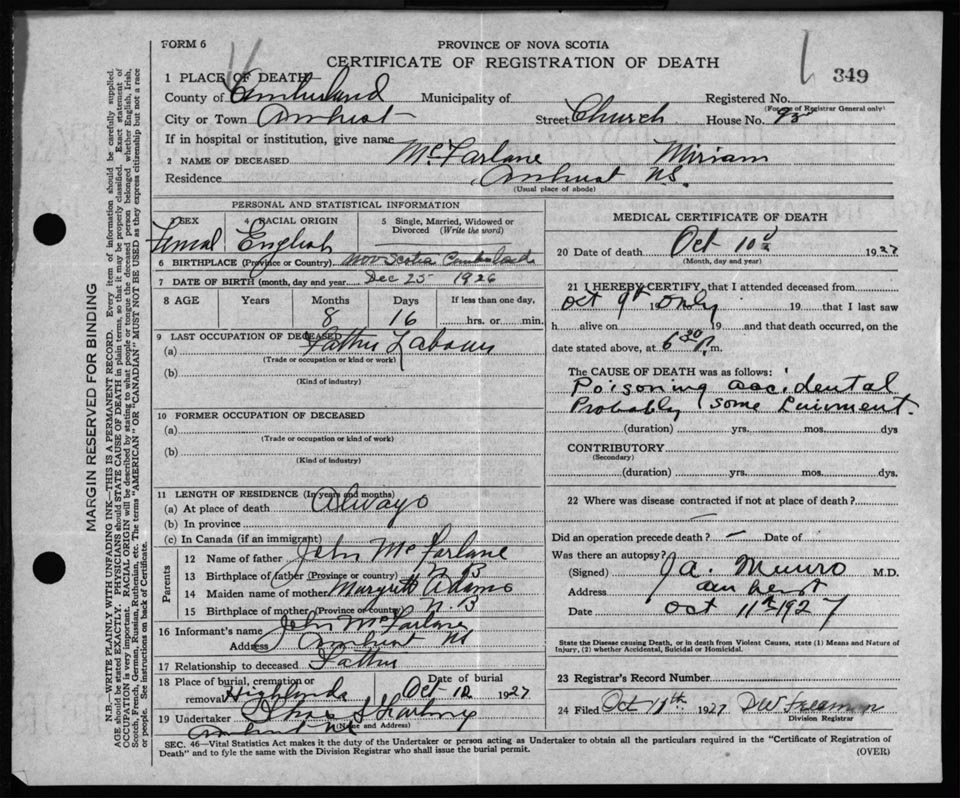 FORM 6
PROVINCE OF NOVA SCOTIA
CERTIFICATE OF REGISTRATION OF DEATH
349
1 PLACE OF DEATH
County of Cumberland Municipality of Registered No.
(For use of Registrar General only)
City or Town Amherst Street Church House No.
If in hospital or institution, give name
2 NAME OF DECEASED McFarlane Miriam
Residence Amherst N.S.
(Usual place of abode)
PERSONAL AND STATISTICAL INFORMATION
3 SEX 4 RACIAL ORIGIN 5 Single, Married, Widowed or Divorced (Write the word)
Femal English
6 BIRTHPLACE (Province or Country) Nov Scotia
7 DATE OF BIRTH (month, day and year) Dec 25 1926
8 AGE Years Months Days If less than one day,
8 16 hrs. or min.
9 LAST OCCUPATION OF DECEASED
(a) Father
(Trade or occupation or kind or work)
(b)
(Kind of industry)
10 FORMER OCCUPATION OF DECEASED
(a)
(Trade or occupation or kind of work)
(b)
(Kind of industry)
11 LENGTH OF RESIDENCE (In years and months)
(a) At place of death Always
(b) In province
(c) In Canada (if an immigrant)
Parents
12 Name of father John McFarlane
13 Birthplace of father (Province or country) N B
14 Maiden name of mother Margrett Adams
15 Birthplace of mother (Province or Country) N.B
16 Informant's name John McFarlane
Address Amherst NS
17 Relationship to deceased Father
18 Place of burial, cremation or removal Highlands Date of burial Oct 12 1927
19 Undertaker
(Name and Address)
Amherst NS
MEDICAL CERTIFICATE OF DEATH
20 Date of death Oct 10 1927
(Month, day and year)
21 I HEREBY CERTIFY, that I attended deceased from
Oct 9th only 19 19 that I last saw
h alive on 19 and that death occurred, on the
date stated above, at 6 30 P. m.
The CAUSE OF DEATH was as follows:
Poisoning accidental
Probably some Liniment.
(duration) yrs. mos. dys
CONTRIBUTORY
(Secondary)
(duration) yrs. mos. dys.
22 Where was disease contracted if not at place of death?
Did an operation precede death? – Date of
Was there an autopsy?
(Signed) J.A. Munro M.D.
Address Amherst
Date Oct 11th 1927
State the Disease causing Death, or in death from Violent Causes, state (1) Means and Nature of
Injury, (2) whether Accidental, Suicidal or Homicidal.
23 Registrar's Record Number
24 Filed Oct 11th 1927
Division Registrar
SEC. 46—Vital Statistics Act makes it the duty of the Undertaker or person acting as Undertaker to obtain all the particulars required in the "Certificate of Registration of
Death" and to fyle the same with the Division Registrar who shall issue the burial permit.
(OVER)
MARGIN RESERVED FOR BINDING
N.B.—WRITE PLAINLY WITH UNFADING INK—THIS IS A PERMANENT RECORD. Every item of information should be carefully supplied.
AGE should be stated EXACTLY. PHYSICIANS should STATE CAUSE OF DEATH in plain terms, so that it may be properly classified. Exact statement of
OCCUPATION is very important. RACIAL ORIGIN will be described by stating to what people or tongue the deceased person belonged whether English, Irish,
Scotch, French, German, Russian, Ruthenian, etc. The terms "AMERICAN" OR "CANADIAN" MUST NOT BE USED as they express citizenship but not a race
or people. See instructions on back of Certificate.